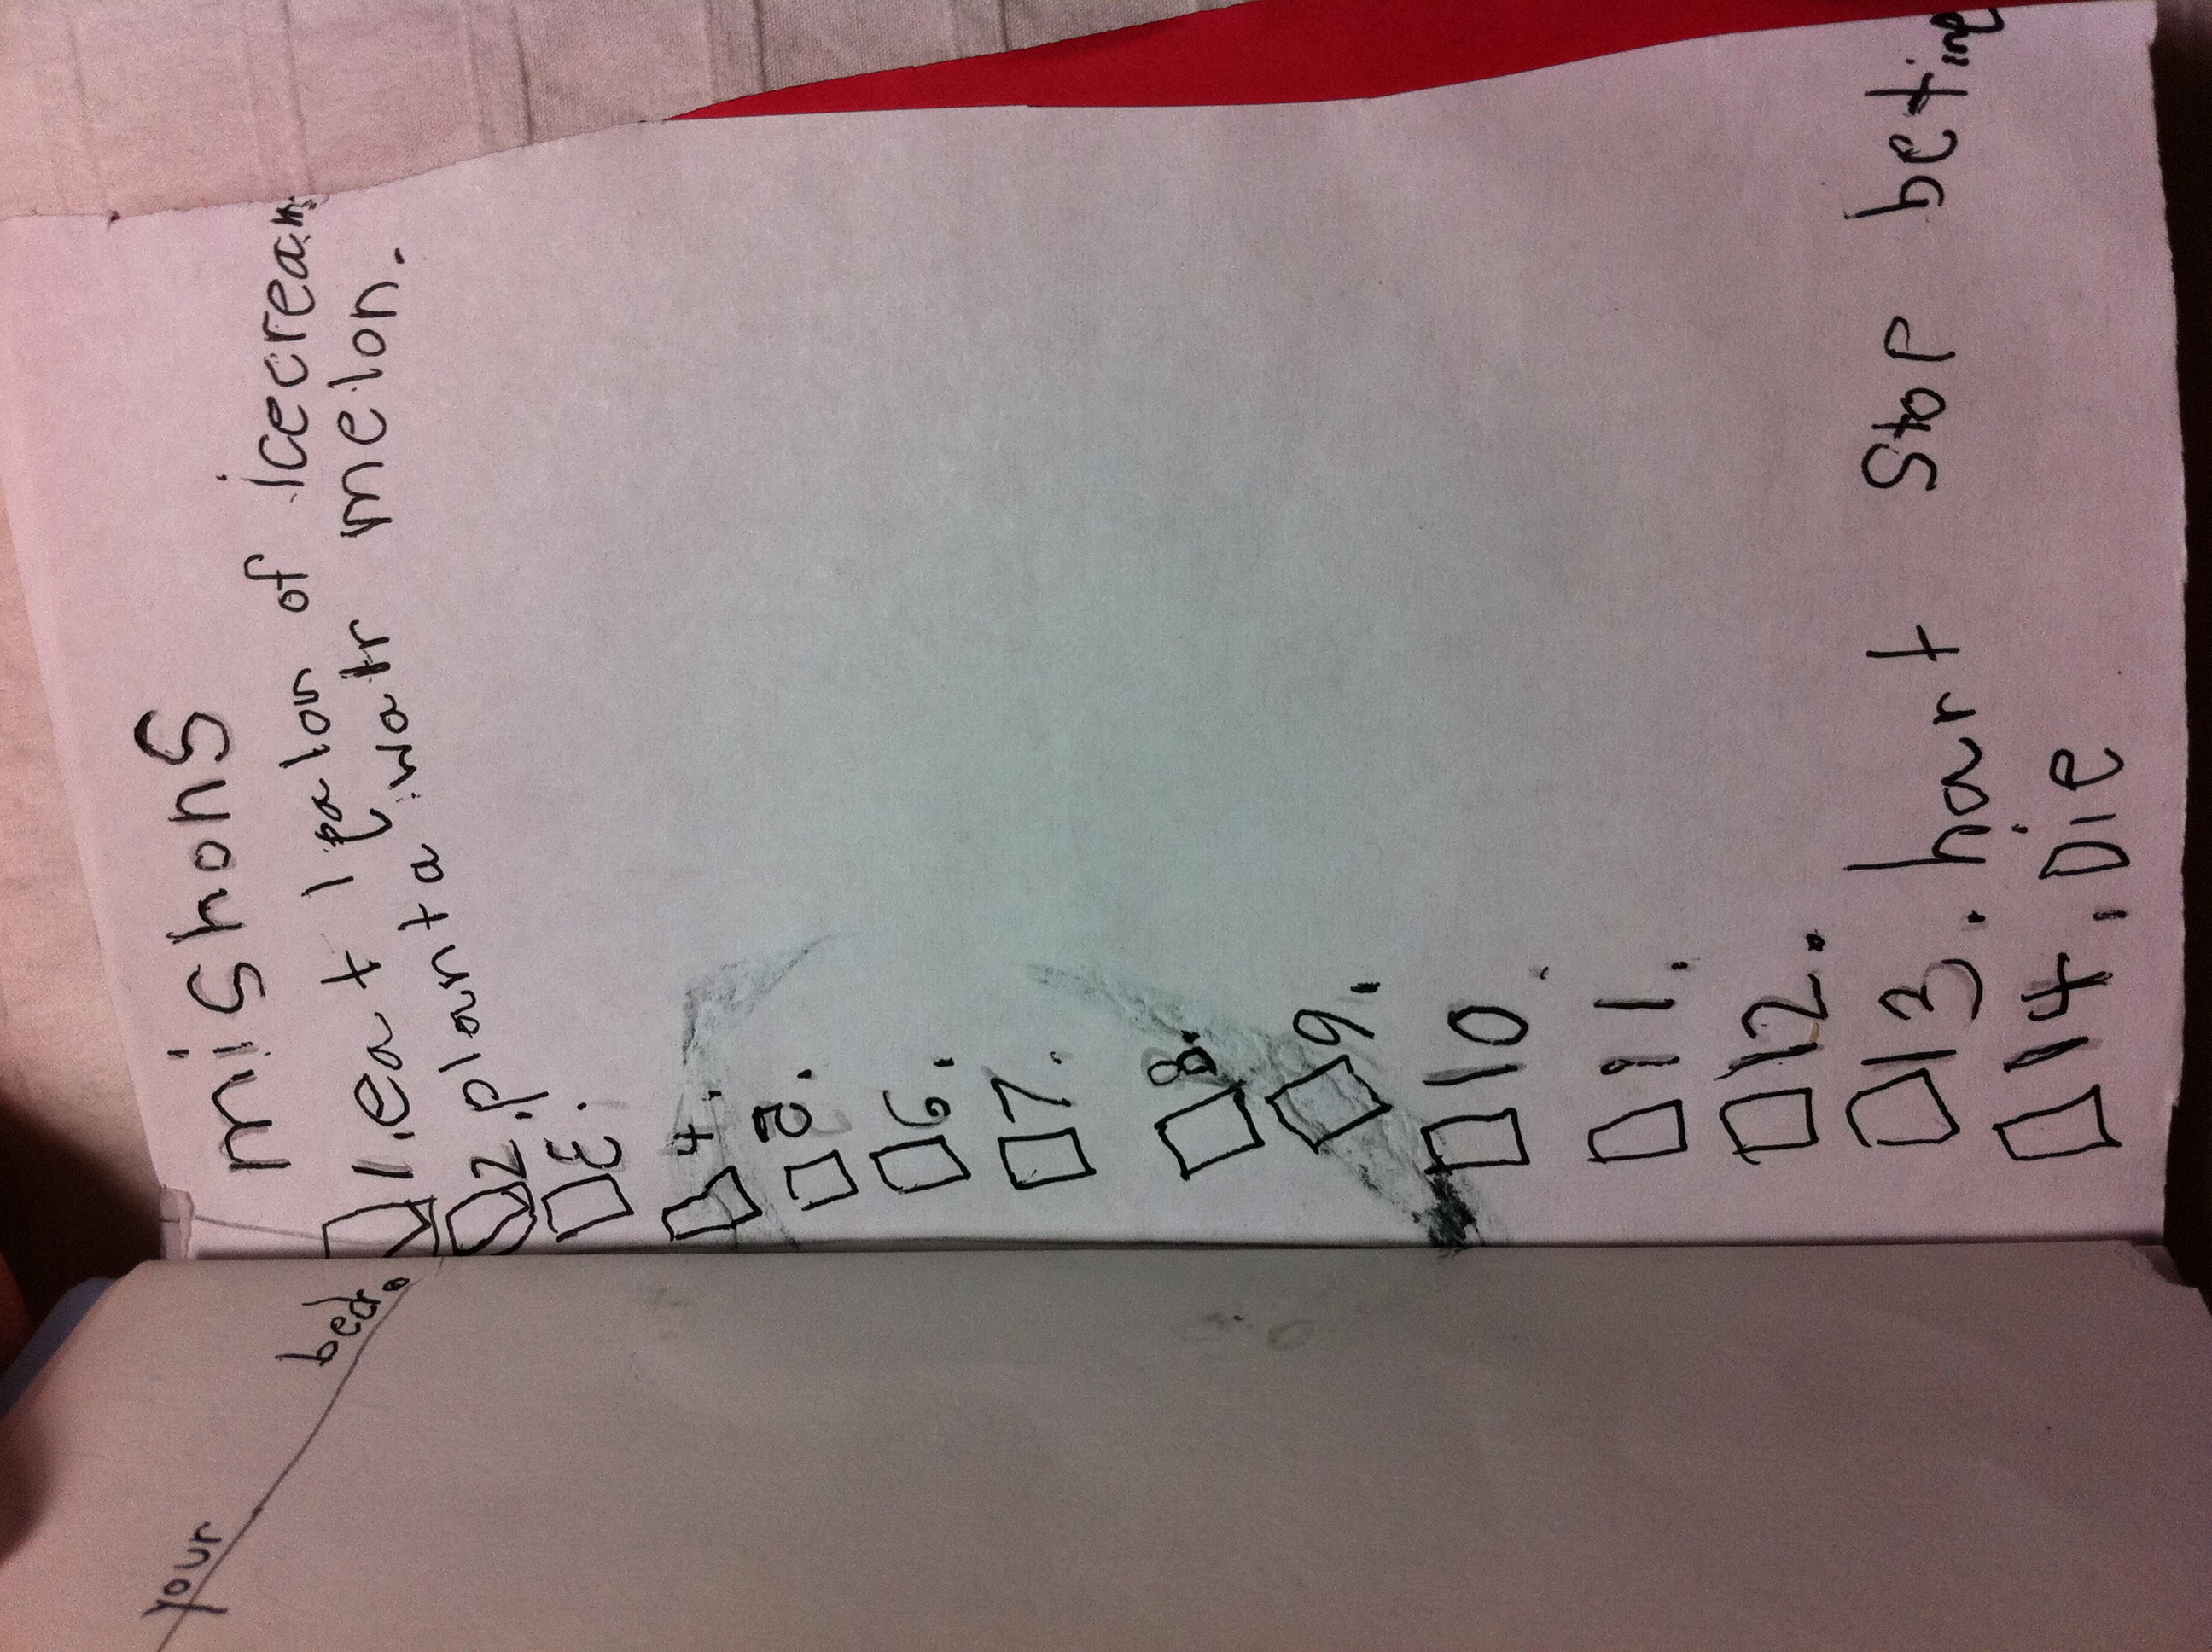 mishons
1. eat 1 galon of icecream
2. plant a watr melon.
3.
4.
5.
6.
7.
8.
9.
10.
11.
12.
13. hart stop beting
14. Die
your
bed.